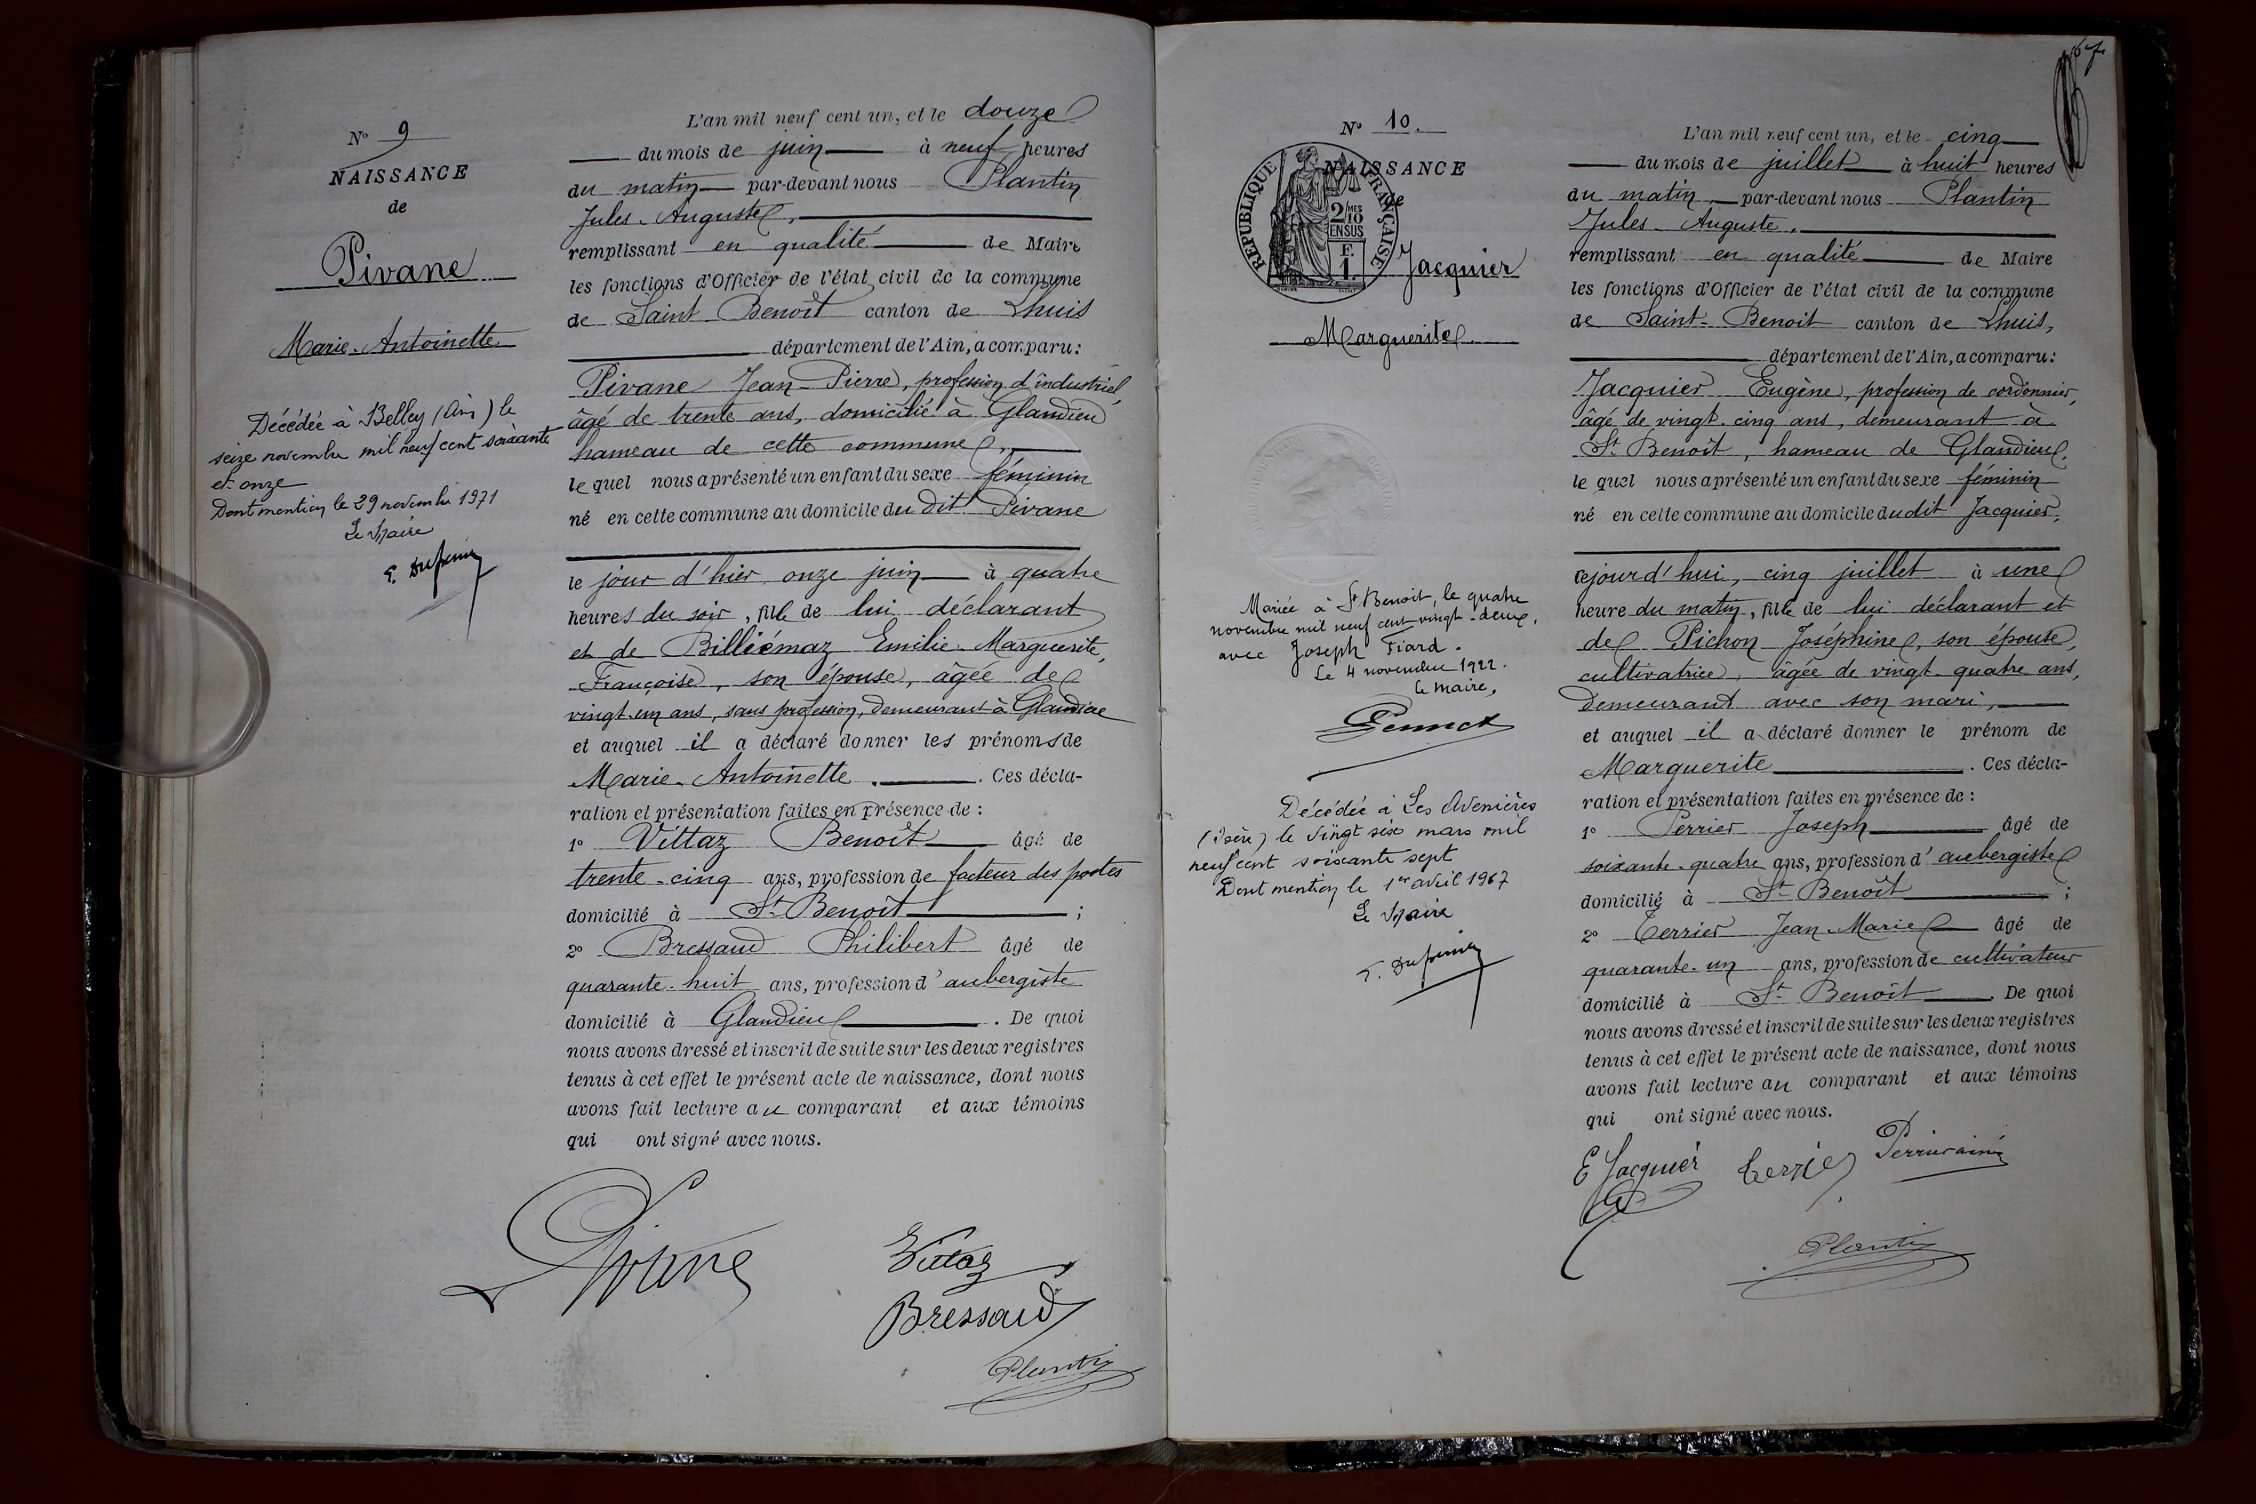 N° 9
NAISSANCE
de
Pivane
Marie-Antoinette
Décédée à Belley (Ain) le
seize novembre mil neuf cent soixante
et onze
Dont mention le 29 novembre 1971
Le Maire
L'an mil neuf cent un, et le douze
du mois de juin à neuf heures
du matin par-devant nous Plantin
Jules-Auguste,
remplissant en qualité de Maire
les fonctions d'Officier de l'état civil de la commune
de Saint-Benoît canton de Lhuis
département de l'Ain, a comparu:
Pivane Jean-Pierre, profession d'industriel,
âgé de trente ans, domicilié à Glandieu
hameau de cette commune,
le quel nous a présenté un enfant du sexe féminin
né en cette commune au domicile du dit Pivane
le jour d'hier onze juin à quatre
heures du soir, fille de lui déclarant
et de Billiémaz Emilie-Marguerite,
Françoise, son épouse, âgée de
vingt-un ans, sans profession, demeurant à Glandieu
et auquel il a déclaré donner les prénoms de
Marie-Antoinette. Ces décla-
ration et présentation faites en présence de :
1° Vittaz Benoît âgé de
trente-cinq ans, profession de facteur des postes
domicilié à St Benoît ;
2° Bressaud Philibert âgé de
quarante-huit ans, profession d'aubergiste
domicilié à Glandieu. De quoi
nous avons dressé et inscrit de suite sur les deux registres
tenus à cet effet le présent acte de naissance, dont nous
avons fait lecture au comparant et aux témoins
qui ont signé avec nous.
Pivane
Vittaz
Bressaud
Plantin
67
N° 10.
NAISSANCE
de
RÉPUBLIQUE FRANÇAISE
2/10 MES
EN SUS
F.
1
Jacquier
Marguerite
Mariée à St Benoit, le quatre
novembre mil neuf cent vingt-deux,
avec Joseph Fiard.
Le 4 novembre 1922.
Le maire,
Décédée à Les Avenières
(Isère) le vingt six mars mil
neuf cent soixante sept
Dont mention le 1er avril 1967
Le Maire
L'an mil neuf cent un, et le cinq
du mois de juillet à huit heures
du matin, par-devant nous Plantin
Jules-Auguste,
remplissant en qualité de Maire
les fonctions d'Officier de l'état civil de la commune
de Saint-Benoit canton de Lhuis,
département de l'Ain, a comparu:
Jacquier Eugène, profession de cordonnier,
âgé de vingt-cinq ans, demeurant à
St Benoît, hameau de Glandieu,
le quel nous a présenté un enfant du sexe féminin
né en cette commune au domicile dudit Jacquier,
cejourd'hui, cinq juillet à une
heure du matin, fille de lui déclarant et
de Pichon Joséphine, son épouse,
cultivatrice, âgée de vingt-quatre ans,
demeurant avec son mari,
et auquel il a déclaré donner le prénom de
Marguerite. Ces décla-
ration et présentation faites en présence de :
1° Perrier Joseph âgé de
soixante-quatre ans, profession d'aubergiste
domicilié à St Benoît ;
2° Terrier Jean-Marie âgé de
quarante-un ans, profession de cultivateur
domicilié à St Benoît. De quoi
nous avons dressé et inscrit de suite sur les deux registres
tenus à cet effet le présent acte de naissance, dont nous
avons fait lecture au comparant et aux témoins
qui ont signé avec nous.
E Jacquier Terrier
Plantin